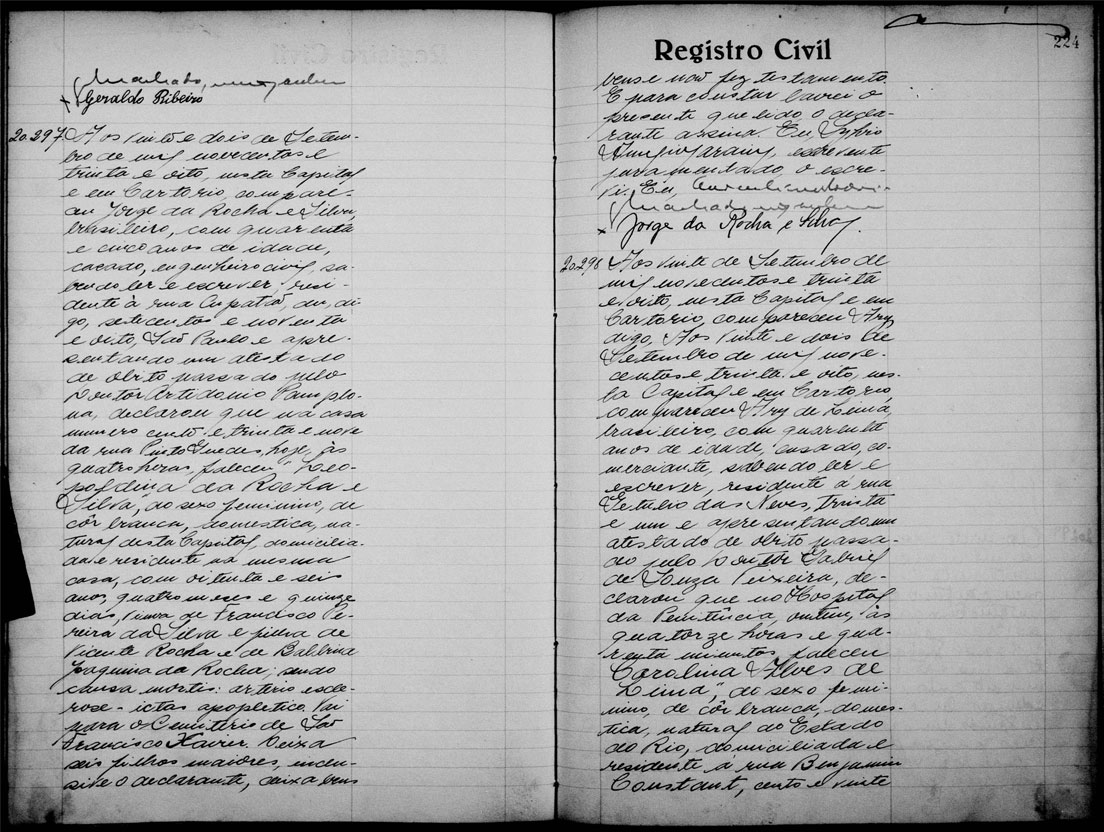 Geraldo Ribeiro
20.297. Aos vinte e dois de Setem-
bro de mil novecentos e
trinta e oito, nesta Capital
e em Cartorio, compare-
ceu Jorge da Rocha e Silva,
brasileiro, com quarenta
e cinco anos de idade,
casado, engenheiro civil, sa-
bendo ler e escrever, resi-
dente à rua, di-
go, setecentos e noventa
e oito, São Paulo e apre-
sentando um atestado
de obito passado pelo
Doutor Artidonio Pamplo-
na, declarou que na casa
numero cento e trinta e nove
da rua Pinto Guedes, hoje, às
quatro horas, faleceu "Leo-
poldina da Rocha e
Silva", do sexo feminino, de
côr branca, domestica, na-
tural desta Capital, domicilia-
da e residente na mesma
casa, com oitenta e seis
anos, quatro meses e quinze
dias, viuva de Francisco Pe-
reira da Silva e filha de
Vicente Rocha e de Balbina
Joaquina da Rocha; sendo
causa mortis: arterio escle-
rose - ictus apopletico. Vai
para o Cemiterio de São
Francisco Xavier. Deixa
seis filhos maiores, inclu-
sive o declarante, deixa bens
Registro Civil
224
bens e não fez testamento.
E para constar lavrei o
presente que lido, o decla-
rante assina. Eu,
escrevente
juramentado, o escre-
vi. Eu,
Jorge da Rocha e Silva.
20.298 Aos vinte de Setembro de
mil novecentos e trinta
e oito, nesta Capital e em
Cartorio, compareceu Ary
digo, Aos vinte e dois de
Setembro de mil nove-
centos e trinta e oito, nes-
ta Capital e em Cartorio,
compareceu Ary de Lima,
brasileiro, com quarenta
anos de idade, casado, co-
merciante, sabendo ler e
escrever, residente à rua
Getulio das Neves, trinta
e um e apresentando um
atestado de obito passa-
do pelo Doutor Gabriel
de Souza Teixeira, de-
clarou que no Hospital
da Penitência, ontem, às
quatorze horas e qua-
renta minutos faleceu
"Carolina Alves de
Lima", do sexo femi-
nino, de côr branca, domes-
tica, natural do Estado
do Rio, domiciliada e
residente à rua Benjamin
Constant, cento e vinte